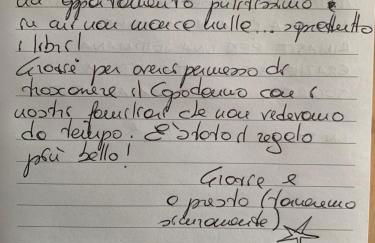 un appartamento pulitissimo e
su cui non manca nulla... soprattutto
i libri!
Grazie per averci permesso di
trascorrere il Capodanno con i
nostri familiari che non vedevamo
da tempo. E' stato il regalo
più bello!
Grazie e
a presto (torneremo
sicuramente)